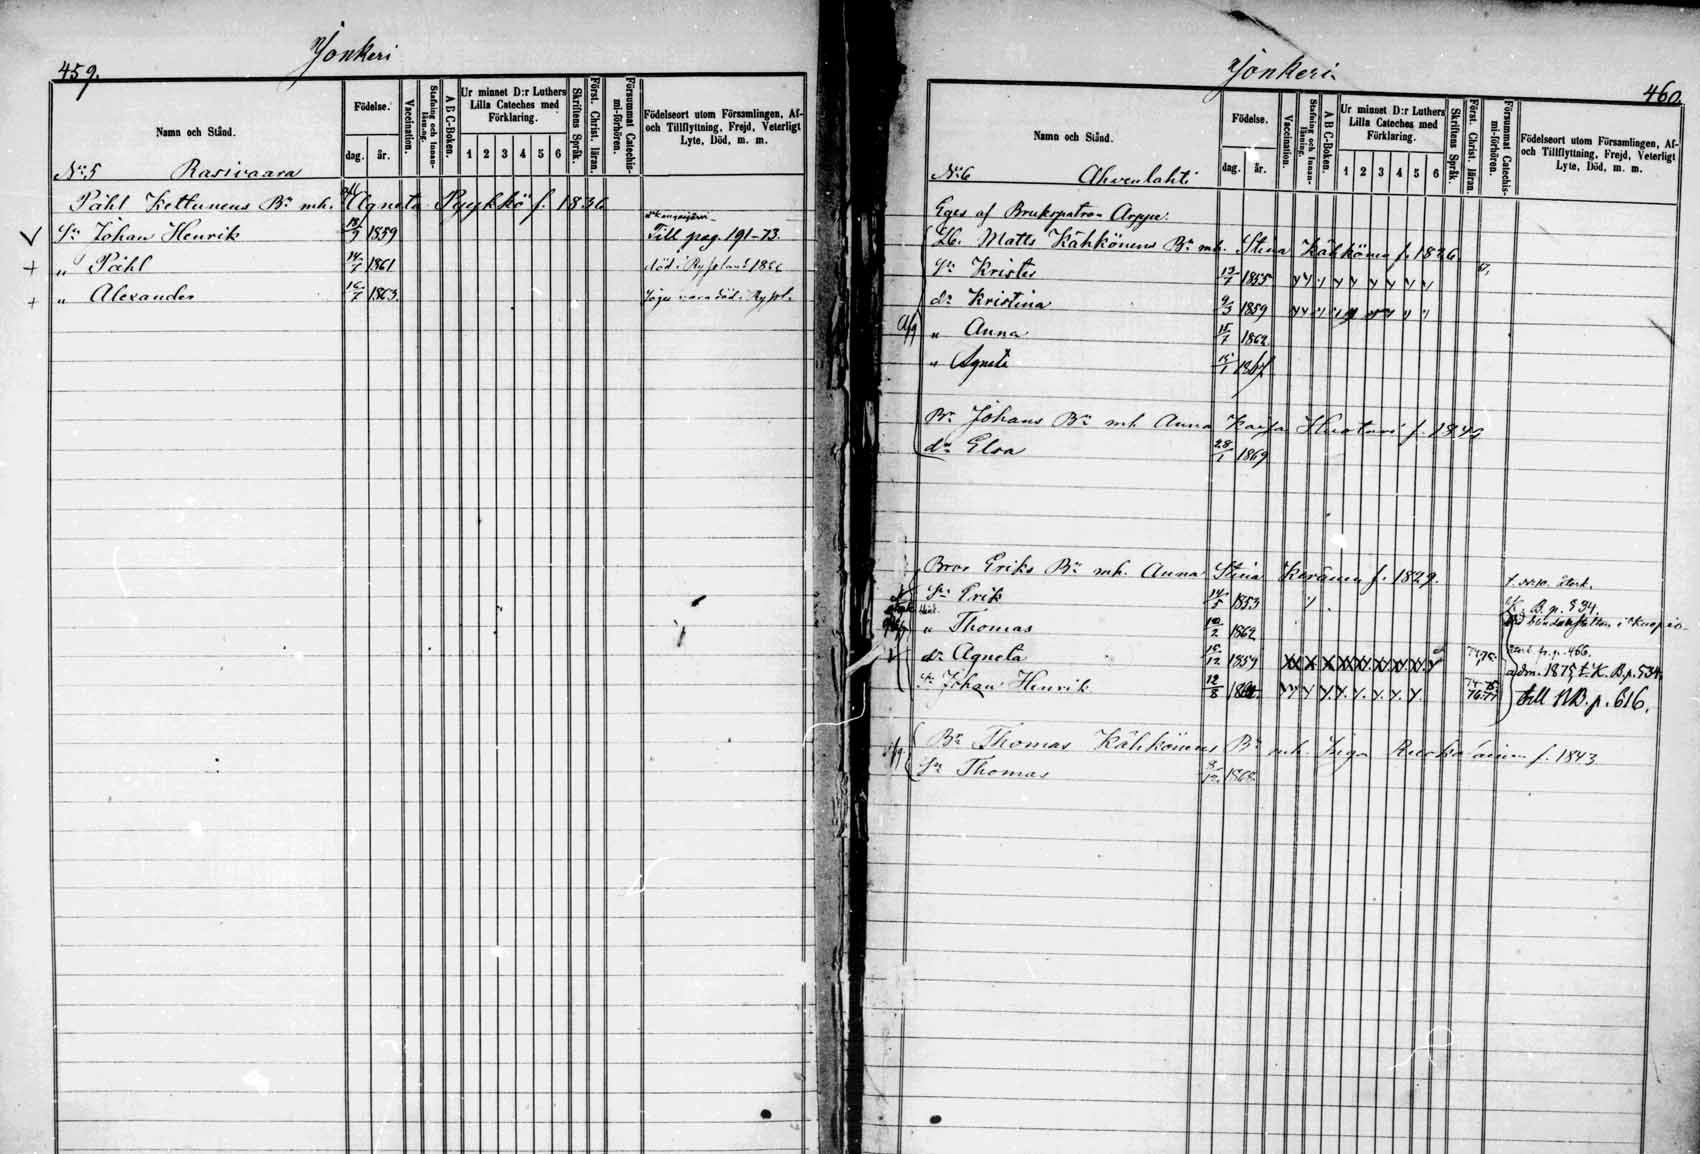 459.
Jonkeri
Namn och Stånd.
Födelse.
dag.
år.
Vaccination.
Stafning och Innanläsning.
A B C-Boken.
Ur minnet D:r Luthers Lilla Cateches med Förklaring.
1 2 3 4 5 6
Skriftens Språk.
Först. Christ. läran.
Försummat Catechismi-förhören.
Födelseort utom Församlingen, Af- och Tillflyttning, Frejd, Veterligt Lyte, Död, m. m.
No 5 Rasivaara
Påhl Kettunens Bn mh. Agneta Pyykkö f. 1836
Sn Johan Henrik 1859 Till pag. 191-73.
+ " Påhl 1861 död i Ryssland
+ " Alexander 1863 död i Ryssl.
Jonkeri
460.
Namn och Stånd.
Födelse.
dag.
år.
Vaccination.
Stafning och Innanläsning.
A B C-Boken.
Ur minnet D:r Luthers Lilla Cateches med Förklaring.
1 2 3 4 5 6
Skriftens Språk.
Först. Christ. läran.
Försummat Catechismi-förhören.
Födelseort utom Församlingen, Af- och Tillflyttning, Frejd, Veterligt Lyte, Död, m. m.
No 6 Ahvenlahti
Eges af Brukspatron Arppe.
Matts Kähkönens Bn mh. Stina Kähkönen f. 1826
Sn Krister 1855
dr Kristina 9/3 1859
" Anna 1862
" Agneta
Br Johans Bn mh Anna Kajsa Huotari
dr Elsa 28/1 1869
Bror Eriks Bn mh. Anna Stina Keränen f. 1829.
Sn Erik 14/5 1853 B. p. 534.
" Thomas 1862
dr Agneta 1859 adm. 1875 K. B. p. 534.
Sn Johan Henrik 12/8 till NB. p. 616.
Br Thomas Kähkönens Bn mh. Inga f. 1843
Sn Thomas 1868